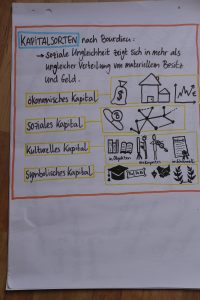 KAPITALSORTEN nach Bourdieu:
→ soziale Ungleichheit zeigt sich in mehr als
ungleicher Verteilung von materiellem Besitz
und Geld.
ökonomisches Kapital
$
Soziales Kapital
Kulturelles Kapital
in Objekten
Symbolisches Kapital